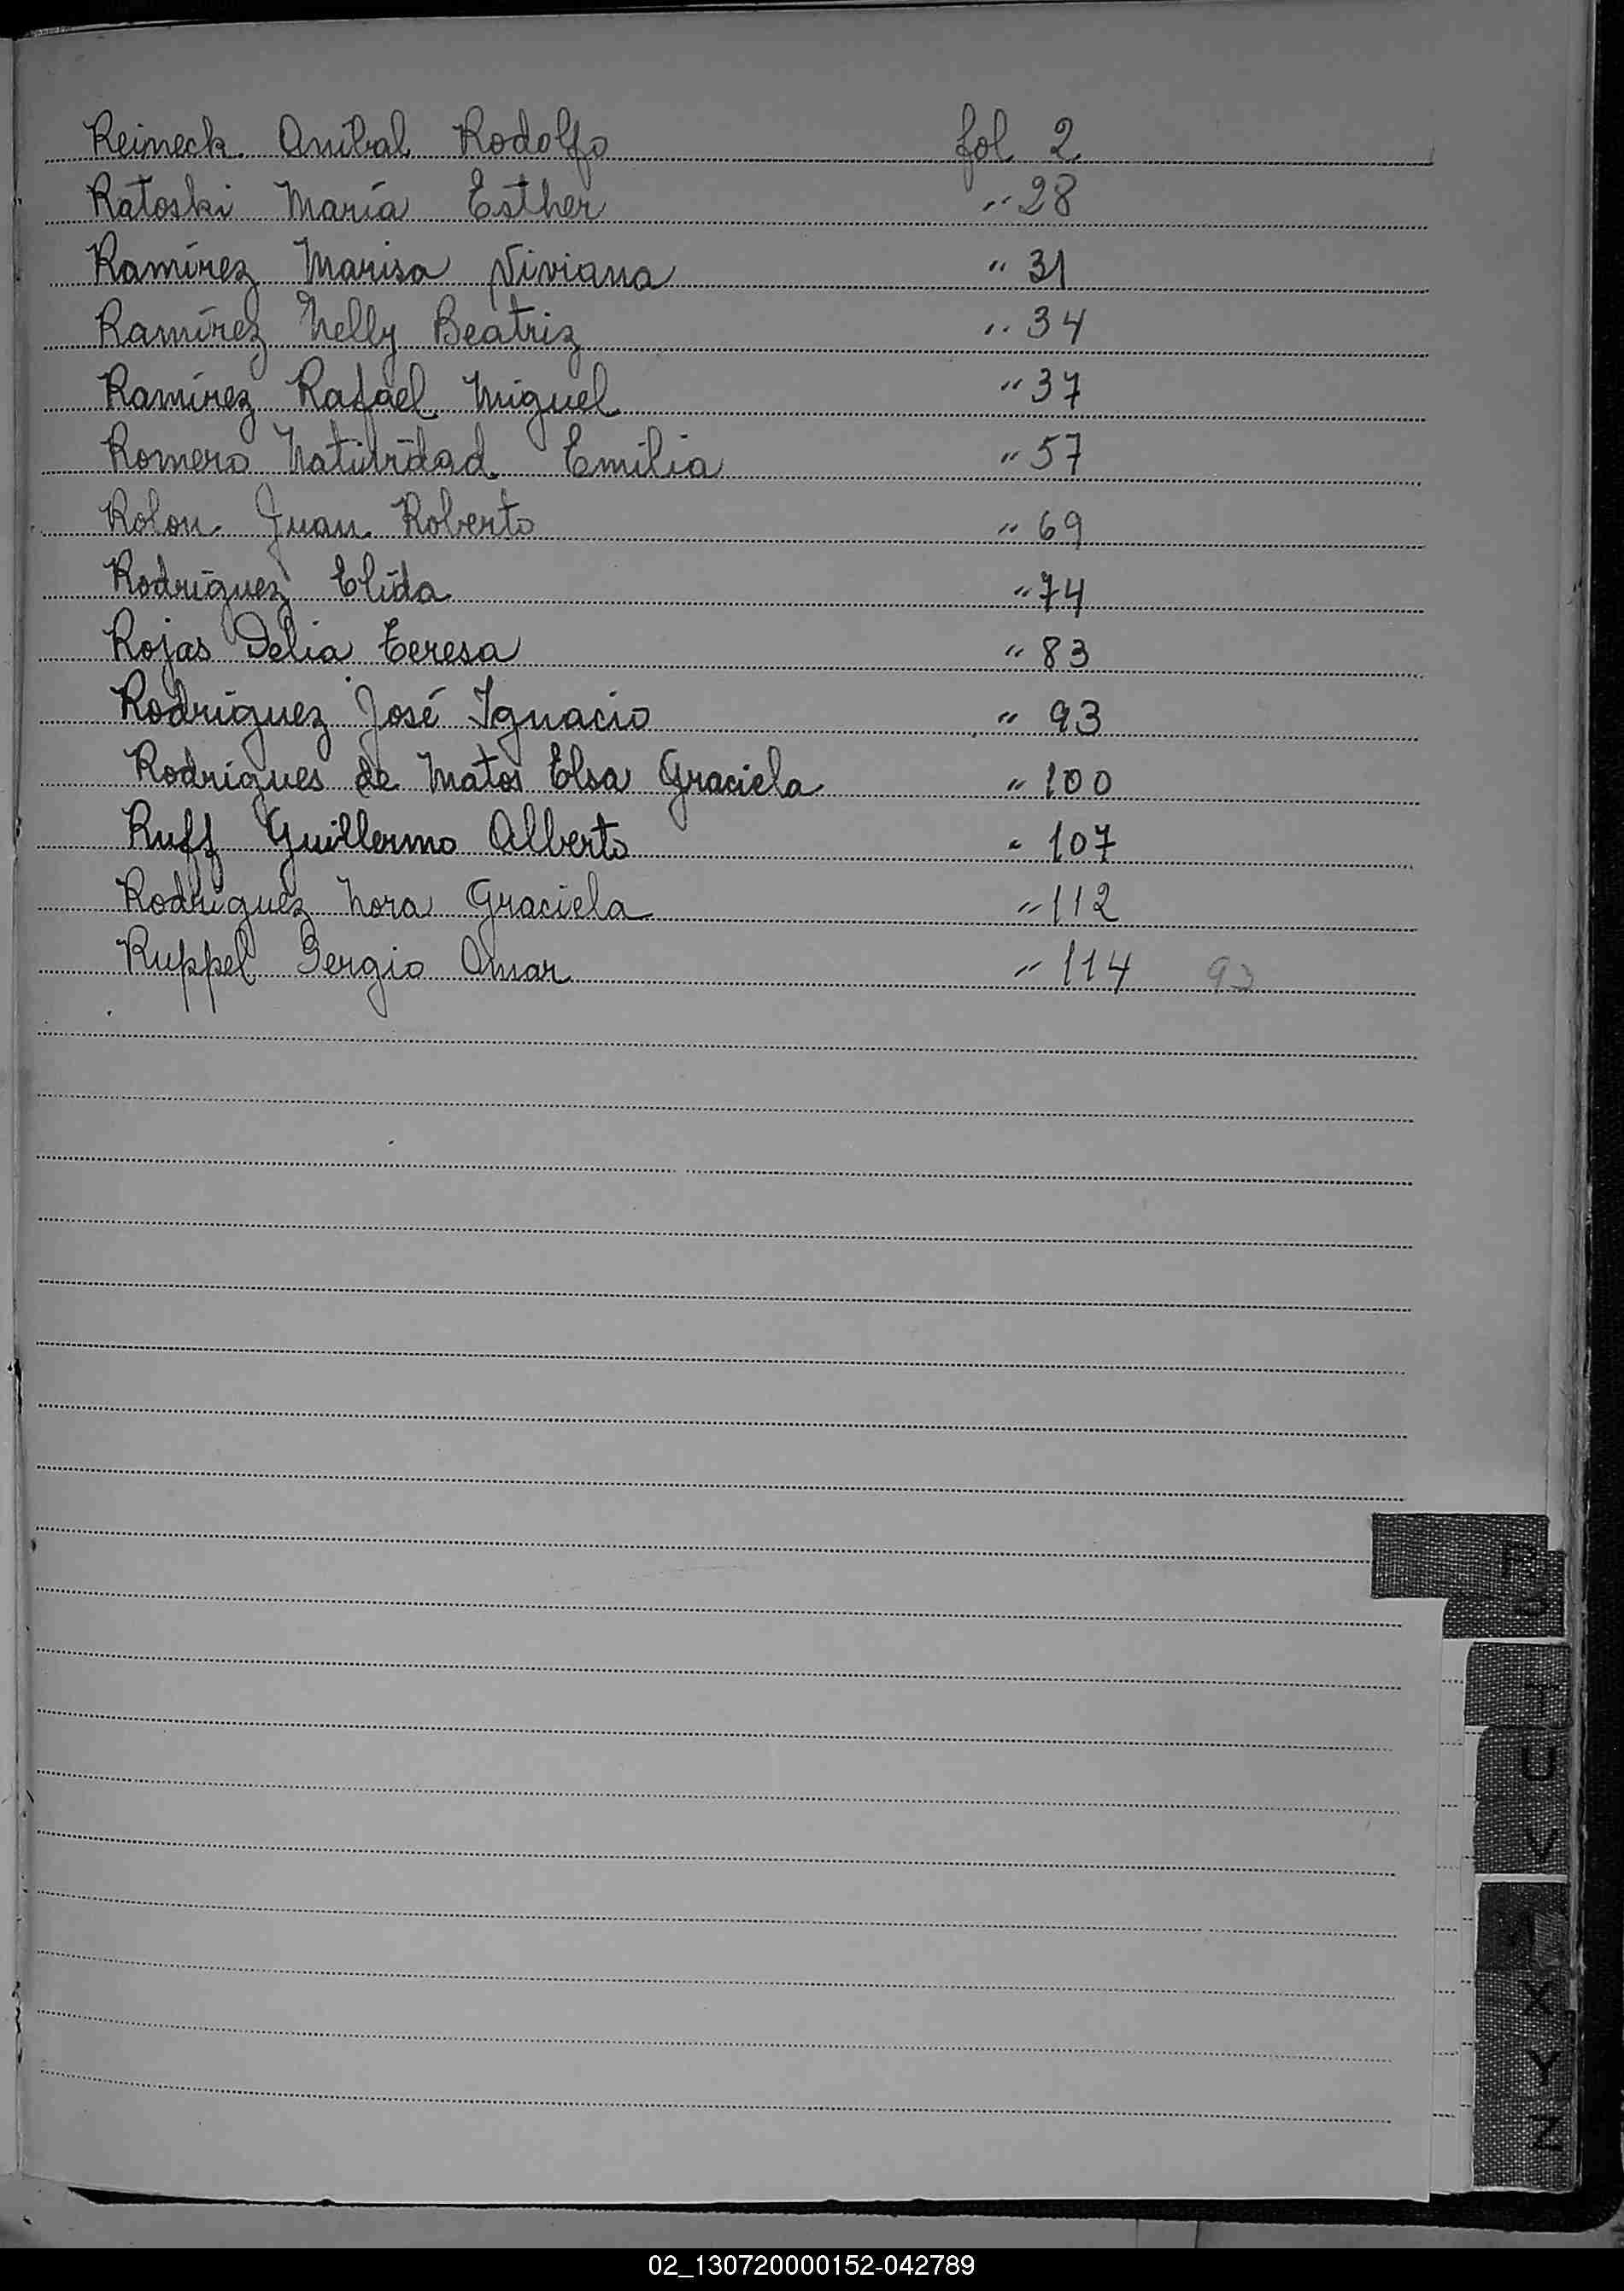 Reineck Anibal Rodolfo fol 2
Ratoski María Esther " 28
Ramírez Marisa Viviana " 31
Ramírez Nelly Beatriz " 34
Ramírez Rafael Miguel " 37
Romero Natividad Emilia " 57
Rolon Juan Roberto " 69
Rodríguez Elida " 74
Rojas Delia Teresa " 83
Rodríguez José Ignacio " 93
Rodrígues de Matos Elsa Graciela " 100
Ruff Guillermo Alberto " 107
Rodríguez Nora Graciela " 112
Ruppel Sergio Omar " 114 93
R
S
T
U
V
X
Y
Z
02_130720000152-042789